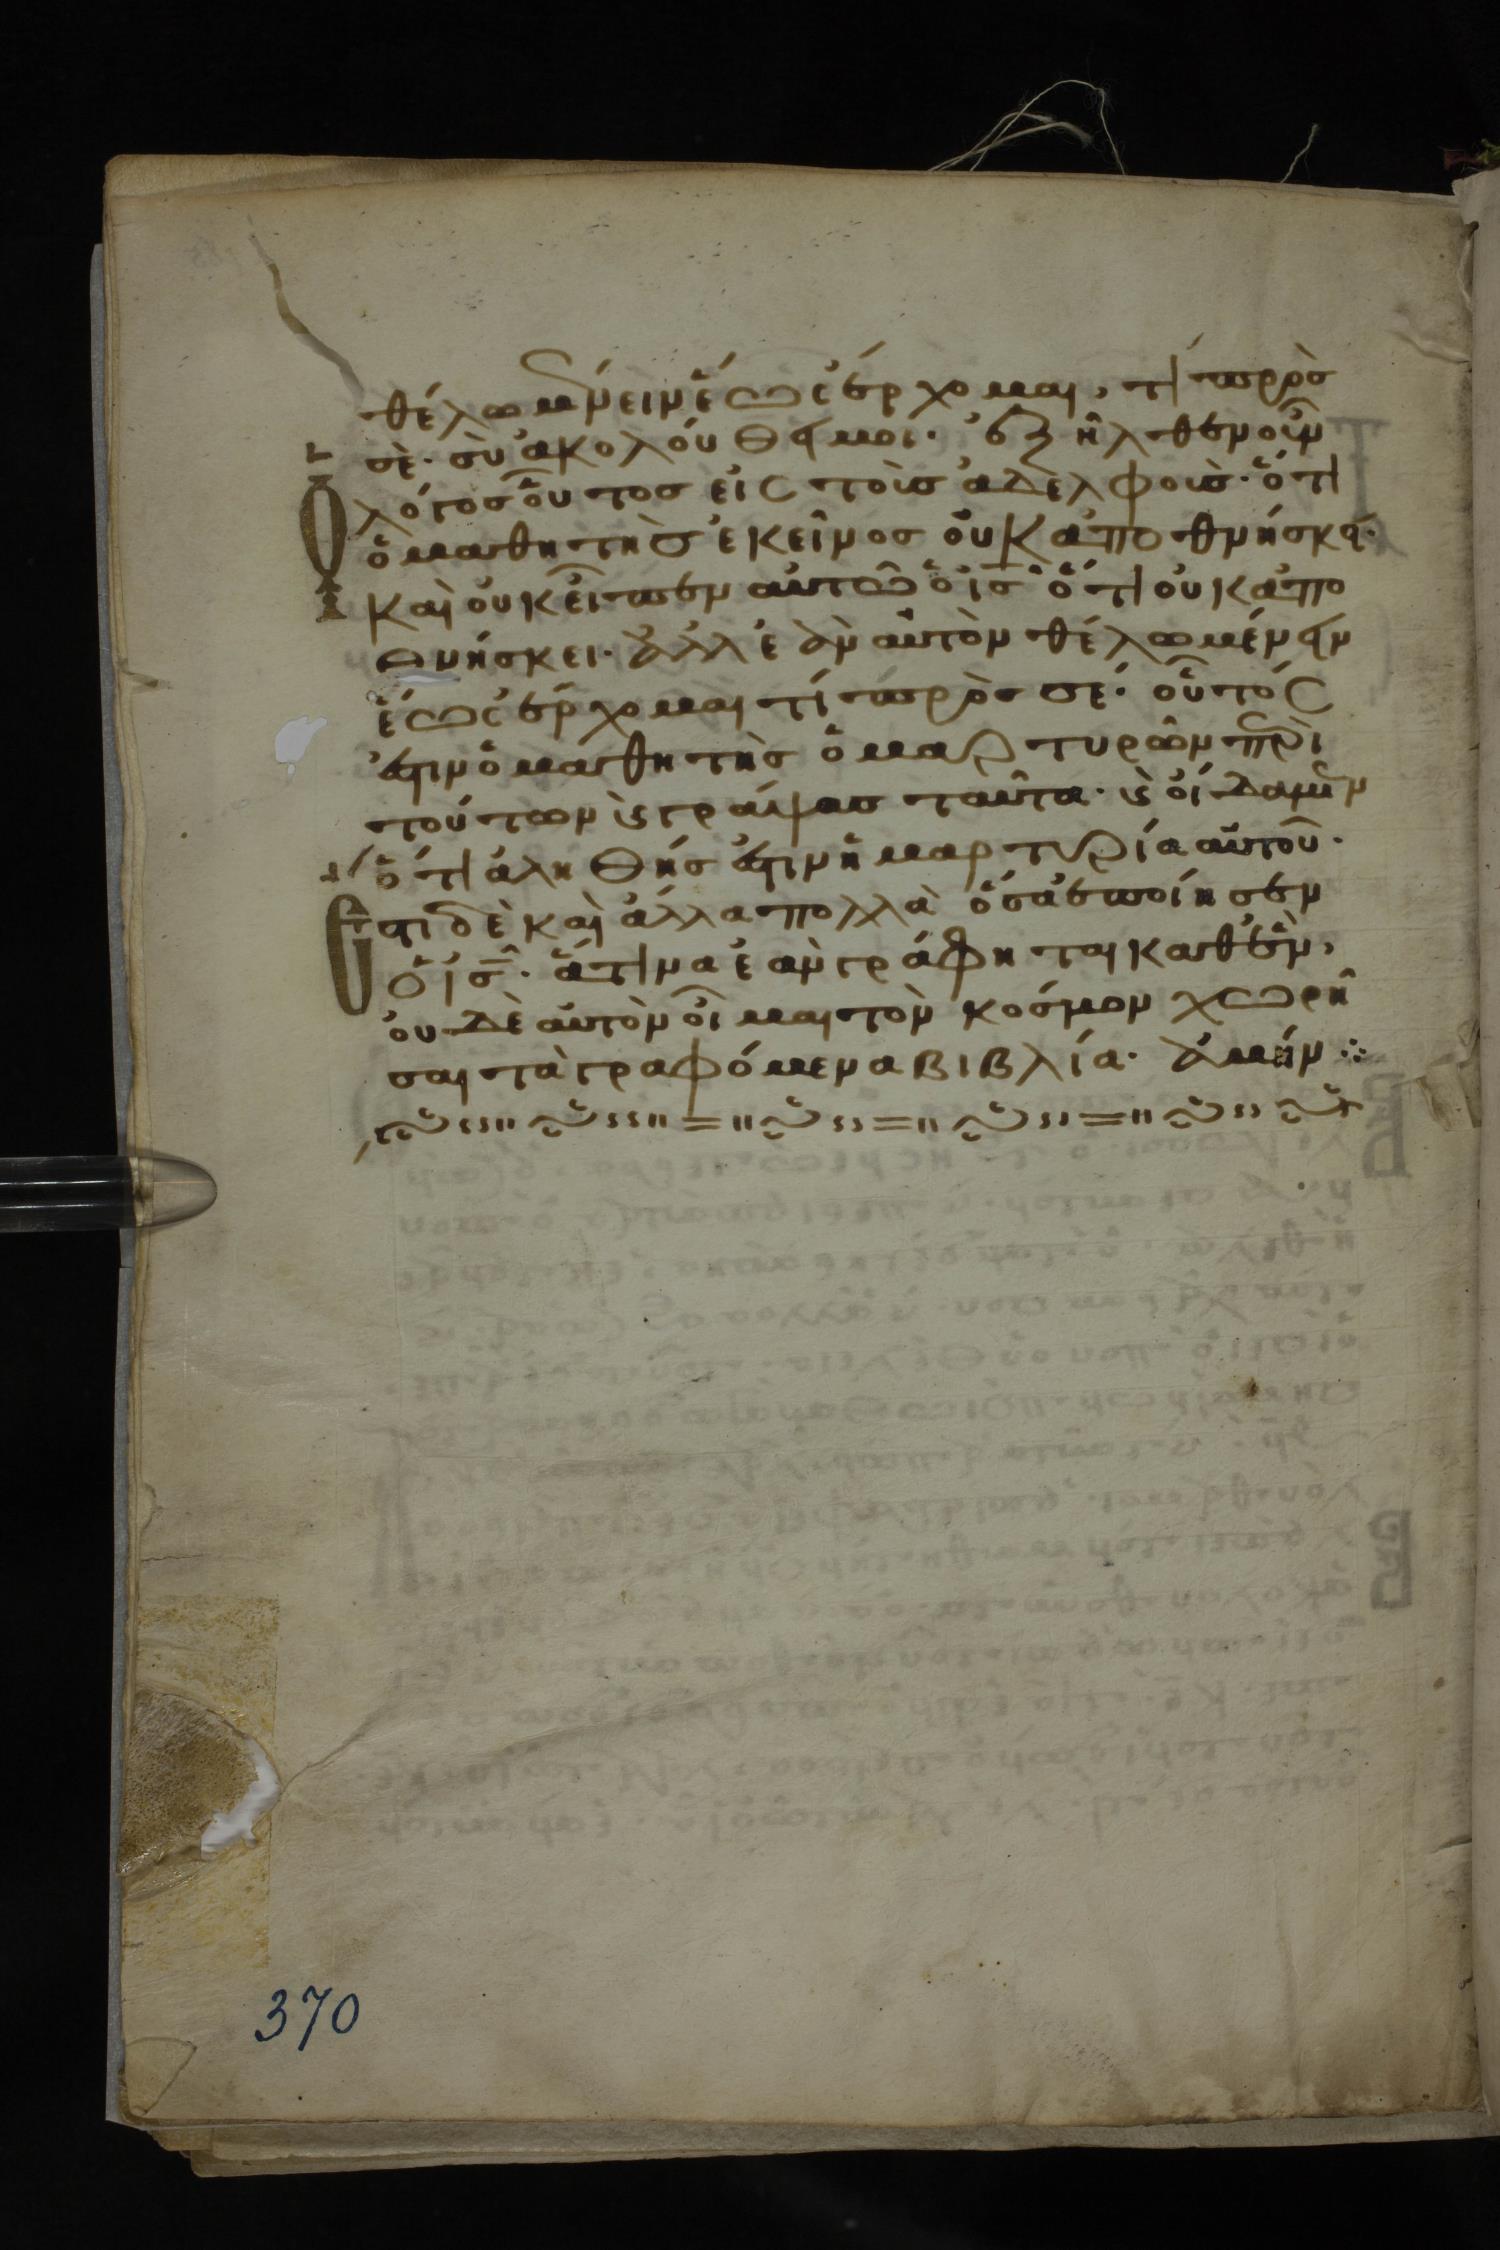 θέλω μένειν ἕως ἔρχομαι, τί πρὸς
σέ· σὺ ἀκολούθει μοι· ἐξῆλθεν οὖν
ὁ λόγος οὗτος εἰς τοὺς ἀδελφοὺς· ὅτι
ὁ μαθητὴς ἐκεῖνος οὐκ ἀποθνήσκει·
καὶ οὐκ εἶπεν αὐτῶ ὁ ις̅ ὅτι οὐκ ἀπο
θνήσκει· ἀλλ' ἐὰν αὐτὸν θέλω μένειν
ἕως ἔρχομαι τί πρὸς σέ· οὗτός
ἐστιν ὁ μαθητὴς ὁ μαρτυρῶν περὶ
τούτων καὶ γράψας ταῦτα· καὶ οἴδαμεν
ὅτι ἀληθής ἐστιν ἡ μαρτυρία αὐτοῦ·
Ἔστι δὲ καὶ ἄλλα πολλὰ ὅσα ἐποίησεν
ὁ ις̅· ἅτινα ἐὰν γράφηται καθ' ἓν,
οὐδὲ αὐτὸν οἶμαι τὸν κόσμον χωρῆ
σαι τὰ γραφόμενα βιβλία· ἀμήν
370